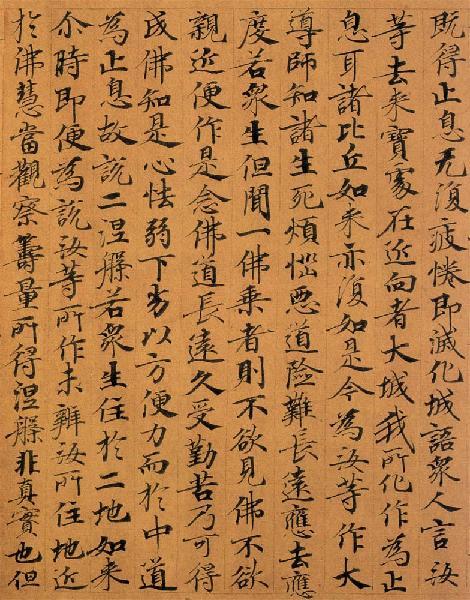 既得止息无復疲惓即滅化城語衆人言汝
等去来寶處在近向者大城我所化作為止
息耳諸比丘如来亦復如是今為汝等作大
導師知諸生死煩惱惡道險難長遠應去應
度若衆生但聞一佛乗者則不欲見佛不欲
親近便作是念佛道長遠久受勤苦乃可得
成佛知是心怯弱下劣以方便力而於中道
為止息故説二涅槃若衆生住於二地如来
尒時即便為説汝等所作未辦汝所住地近
於佛慧當觀察籌量所得涅槃非真實也但